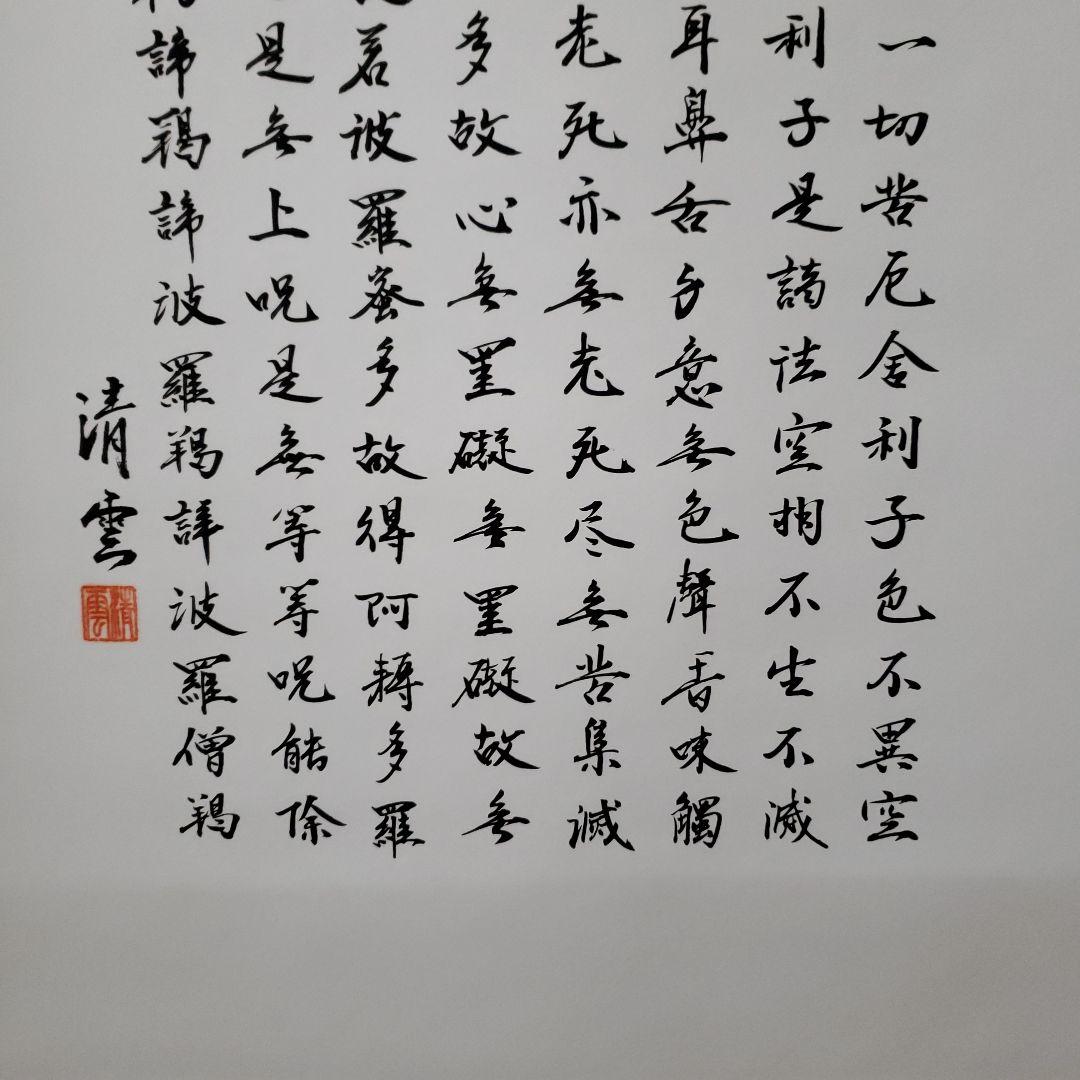 一切苦厄舍利子色不異空
利子是諸法空相不生不滅
耳鼻舌身意無色聲香味觸
老死亦無老死尽無苦集滅
多故心無罣礙無罣礙故無
若波羅蜜多故得阿耨多羅
是無上呪是無等等呪能除
諦羯諦波羅羯諦波羅僧羯
清雲
清雲